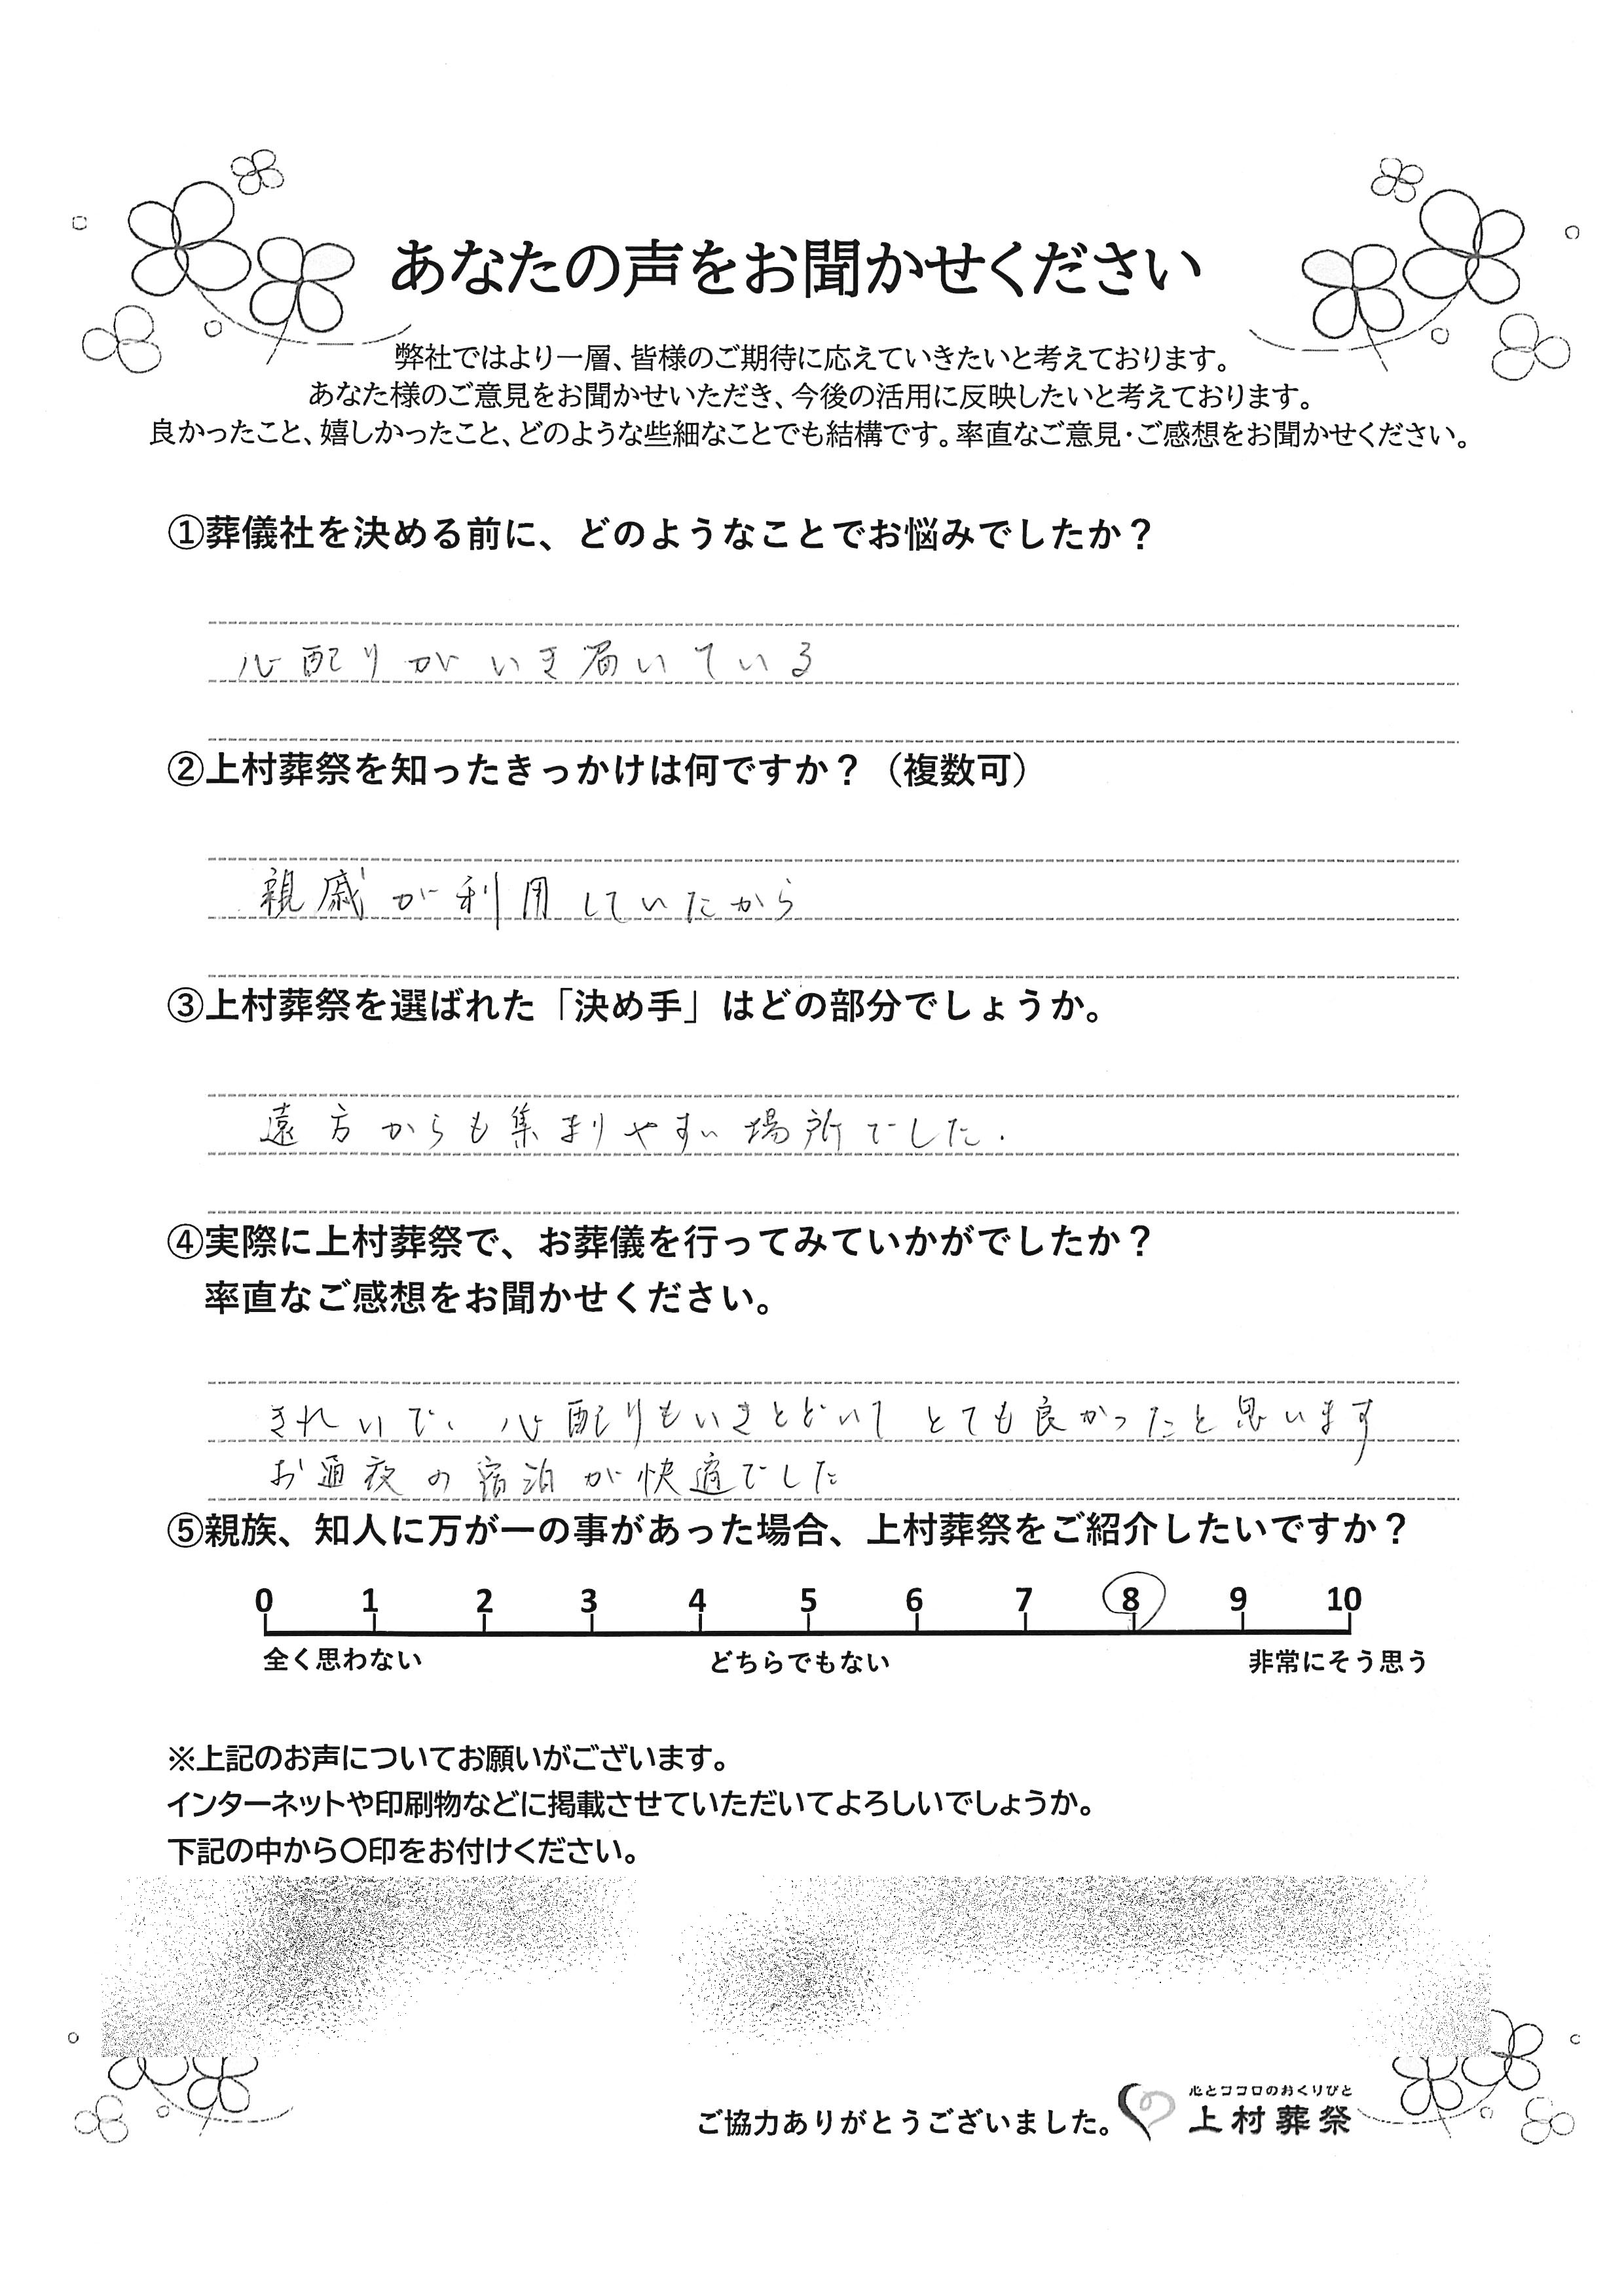 あなたの声をお聞かせください
弊社ではより一層、皆様のご期待に応えていきたいと考えております。
あなた様のご意見をお聞かせいただき、今後の活用に反映したいと考えております。
良かったこと、嬉しかったこと、どのような些細なことでも結構です。率直なご意見・ご感想をお聞かせください。
①葬儀社を決める前に、どのようなことでお悩みでしたか？
心配りがいき届いている
②上村葬祭を知ったきっかけは何ですか？（複数可）
親戚が利用していたから
③上村葬祭を選ばれた「決め手」はどの部分でしょうか。
遠方からも集まりやすい場所でした.
④実際に上村葬祭で、お葬儀を行ってみていかがでしたか？
率直なご感想をお聞かせください。
きれいで、心配りもいきとどいてとても良かったと思います
お通夜の宿泊が快適でした
⑤親族、知人に万が一の事があった場合、上村葬祭をご紹介したいですか？
0 1 2 3 4 5 6 7 8 9 10
全く思わない どちらでもない 非常にそう思う
※上記のお声についてお願いがございます。
インターネットや印刷物などに掲載させていただいてよろしいでしょうか。
下記の中から〇印をお付けください。
心とココロのおくりびと
ご協力ありがとうございました。 上村葬祭